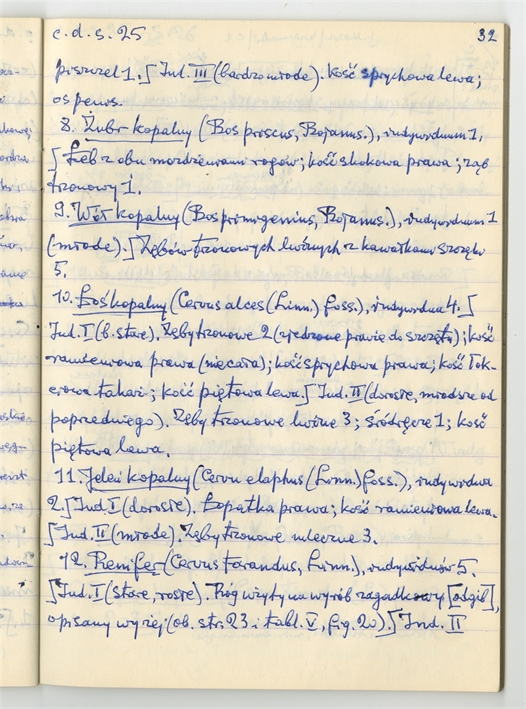 c.d.s. 25
32
piszczel 1.⌠ Ind. III (bardzo młode). Kość sprychowa lewa;
os penis.
8. Żubr kopalny (Bos priscus, Bojanus.), indywiduum 1,
⌠ Łeb z obu możdżeniami rogów; kość skokowa prawa; ząb
trzonowy 1.
9. Wół kopalny (Bos primigenius, Bojanus.), indywiduum 1
(młode).⌠ Zębów trzonowych luźnych z kawałkami szczęki
5.
10. Łoś kopalny (Cervus alces (Linn.) foss.), indywidua 4.⌠
Ind. I (b. stare). Zęby trzonowe 2 (zjedzone prawie do szczętu); kość
ramieniowa prawa (niecała); kość sprychowa prawa; kość łok-
ciowa takaż; kość piętowa lewa.⌠ Ind. II (dorosłe, młodsze od
poprzedniego). Zęby trzonowe luźne 3; śródręcze 1; kość
piętowa lewa.
11. Jeleń kopalny (Cervu elaphus (Linn.) foss.), indywidua
2.⌠ Ind. I (dorosłe). Łopatka prawa; kość ramieniowa lewa.
⌠ Ind. II (młode). Zęby trzonowe mleczne 3.
12. Renifer (Cervus tarandus, Linn.), indywiduów 5.
⌠ Ind. I (stare, rosłe). Róg wzięty na wyrób zagadkowy [odgib],
opisany wyżej (ob. str. 23 i tabl. V, fig. 20).⌠ Ind. II